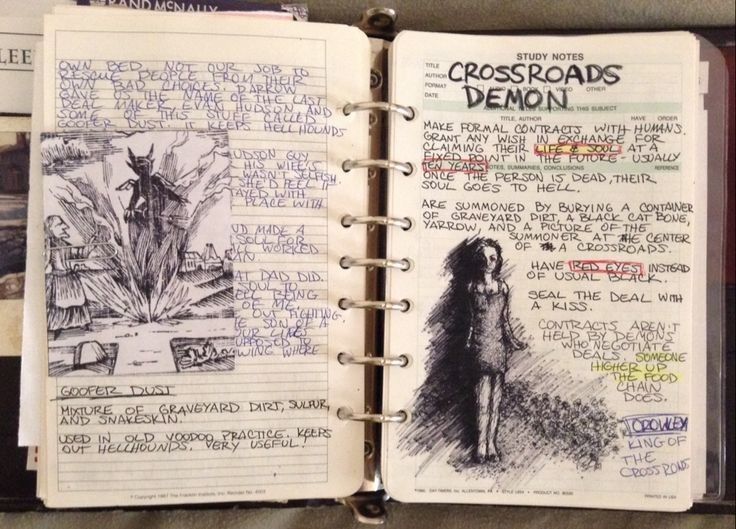 RAND McNALLY
LEE
OWN BED. NOT OUR JOB TO
RESCUE PEOPLE FROM THEIR
OWN BAD CHOICES. DARROW
GAVE US THE NAME OF THE LAST
DEAL MAKER, EVAN HUDSON AND
SOME OF THIS STUFF CALLED
GOOFER DUST. IT KEEPS HELLHOUNDS
HUDSON GUY
HIS WIFE
WASN'T SELFISH.
SHE'D FEEL IF
STAYED WITH
PLACE WITH
MADE A
SOUL FOR
WORKED
AT DAD DID.
SOUL TO
BEING
OF ME
OUT FIGHTING.
THE SON OF A
OUR LIVES
SUPPOSED TO
WHERE
GOOFER DUST
MIXTURE OF GRAVEYARD DIRT, SULFUR,
AND SNAKESKIN.
USED IN OLD VOODOO PRACTICE. KEEPS
OUT HELLHOUNDS. VERY USEFUL!
STUDY NOTES
TITLE CROSSROADS
AUTHOR
FORMAT BOOK VIDEO OTHER
DATE DEMON
SUPPORTING THIS SUBJECT
TITLE, AUTHOR HAVE ORDER
MAKE FORMAL CONTRACTS WITH HUMANS.
GRANT ANY WISH IN EXCHANGE FOR
CLAIMING THEIR LIFE & SOUL AT A
FIXED POINT IN THE FUTURE - USUALLY
TEN YEARS. NOTES, SUMMARIES, CONCLUSIONS REFERENCE
ONCE THE PERSON IS DEAD, THEIR
SOUL GOES TO HELL.
ARE SUMMONED BY BURYING A CONTAINER
OF GRAVEYARD DIRT, A BLACK CAT BONE,
YARROW, AND A PICTURE OF THE
SUMMONER AT THE CENTER
OF A CROSSROADS.
HAVE RED EYES INSTEAD
OF USUAL BLACK.
SEAL THE DEAL WITH
A KISS.
CONTRACTS AREN'T
HELD BY DEMONS
WHO NEGOTIATE
DEALS. SOMEONE
HIGHER UP
THE FOOD
CHAIN
DOES.
CROWLEY
KING OF
THE
CROSSROADS
PRINTED IN USA